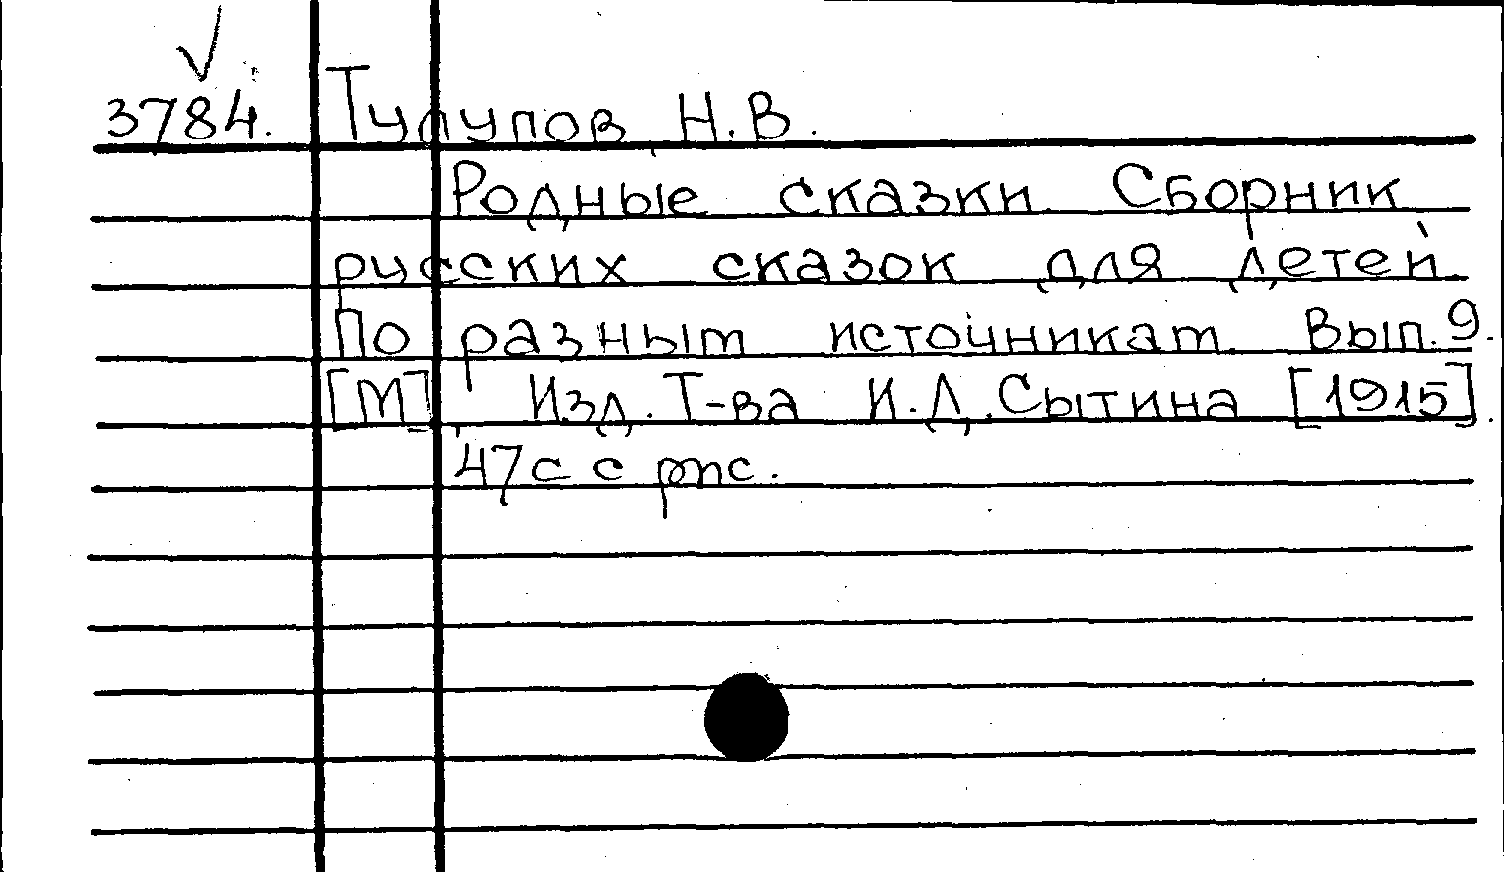 3784. Тулупов, Н.В.
Родные сказки. Сборник
русских сказок для детей.
По разным источникам. Вып. 9.
[М], Изд. Т-ва И.Д. Сытина [1915].
47с с рис.